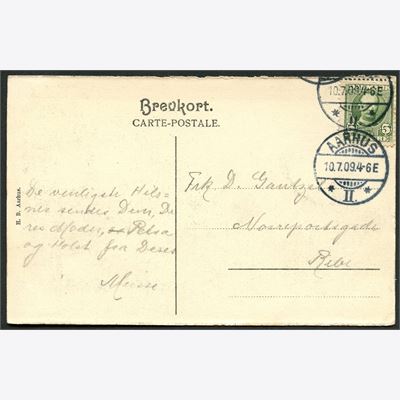 Brevkort.
CARTE-POSTALE.
10.7.09.4-6E
II.
5
AARHUS
10.7.09.4-6E
II.
H. B. Aarhus.
De venligste Hils=
ner sendes Dem, De
res Moder,
og Holst fra Deres
Frk. D.
Norreportsgade
Ribe